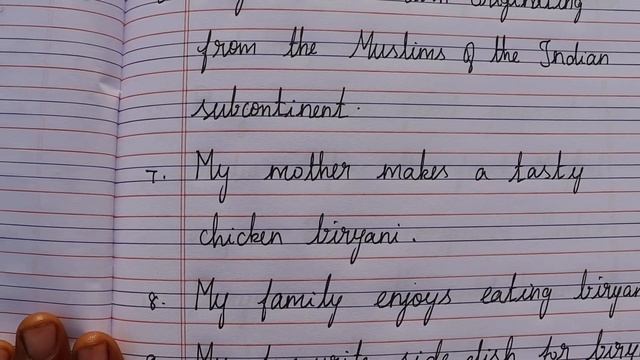 originating
from the Muslims of the Indian
subcontinent.
7. My mother makes a tasty
chicken biryani.
8. My family enjoys eating
My side dish for